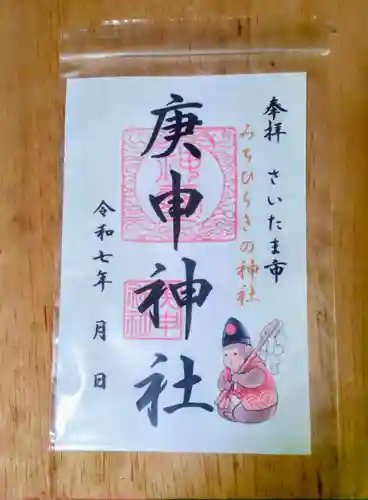 奉拝 さいたま市
みちひらきの神社
庚申神社
令和七年 月 日